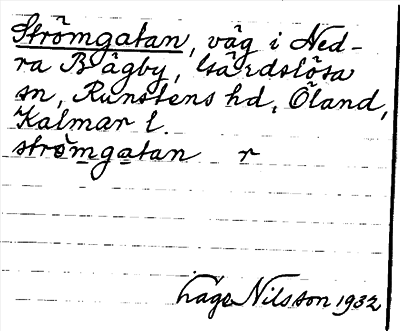 Strömgatan, väg i Ned-
ra Bägby, Gärdslösa
sn, Runstens hd, Öland,
Kalmar l.
strömgatan r
Hage Nilsson 1932